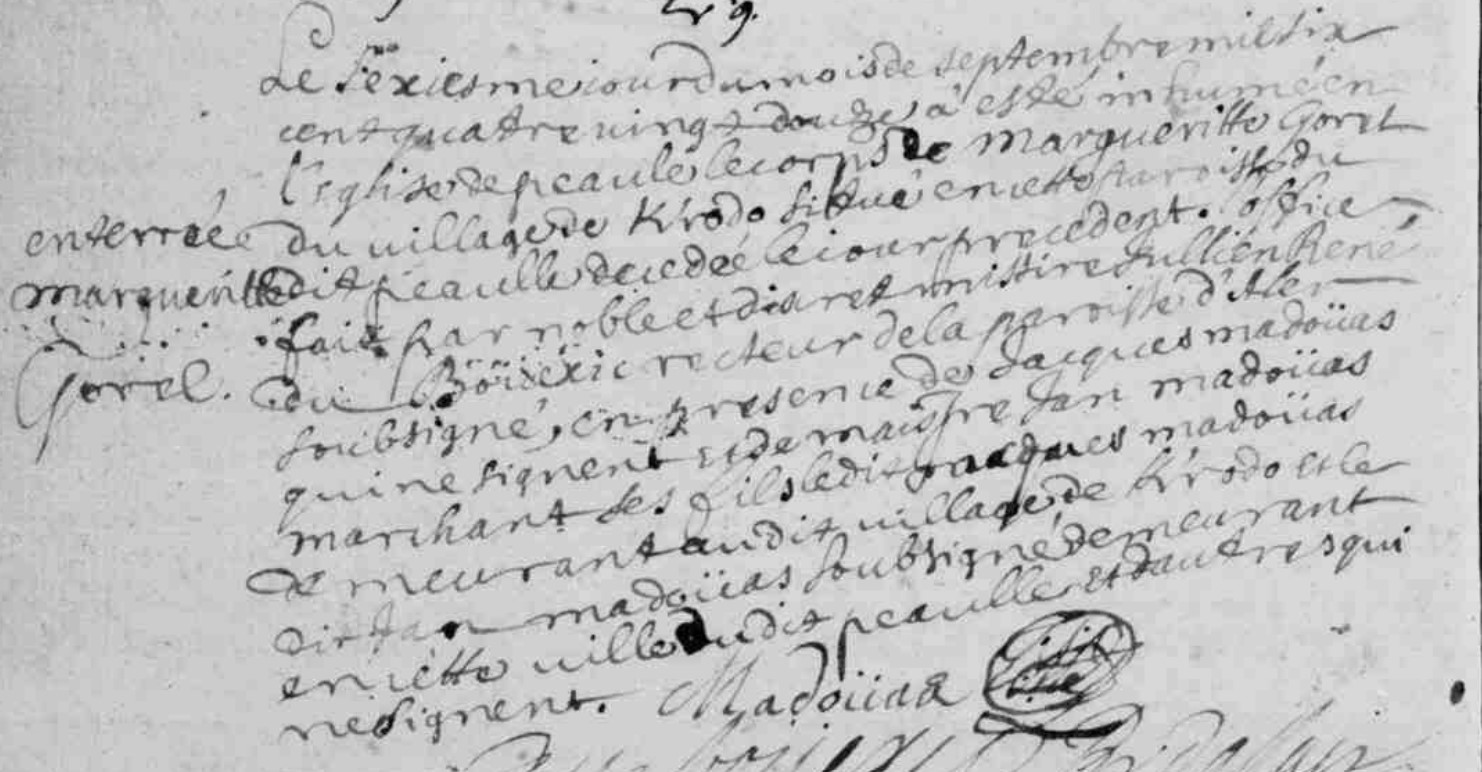 Le séxiesme iour du mois de septembre mil six
cent quatre vingt douze, a esté inhumé en
l'eglise de peaule le corps de Margueritte Gorel
enterrée
margueritte
Gorel.
du village de K/rodo situé en cette paroisse du
dit peaulle decedée le iour precedent. l'office
fait par noble et discret missire Jullien René
du Boüéxic recteur de la paroisse d'Aler
soubsigné, en presence de Jacques madoüas
qui ne signent et de maistre Jan madoüas
marchant ses fils ledit Jacques madoüas
demeurant audit village de K/rodo et le
dit Jan madoüas soubsigné demeurant
en cette ville dudit peaulle et dautres qui
ne signent. Madoüas